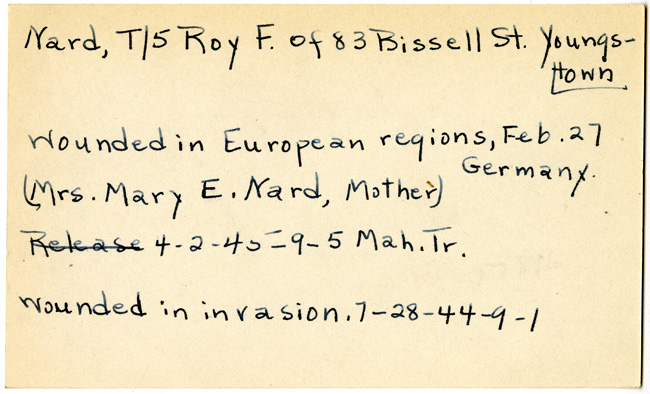 Nard, T/5 Roy F. of 83 Bissell St. Youngs-
town
Wounded in European regions, Feb. 27
Germany.
(Mrs. Mary E. Nard, Mother)
Release 4-2-45-9-5 Mah. Tr.
Wounded in invasion. 7-28-44-9-1